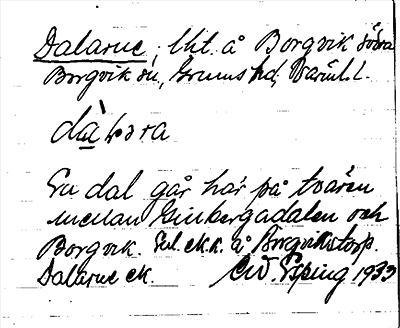 Dalarne, lht. å Borgvik södra
Borgvik sn, Grums hd, Värml. l.
En dal går här på tvären
mellan Ginbergadalen och
Borgvik. Enl. ek.k. å Borgvikstorp.
Dalarne ek. C.W. 1933